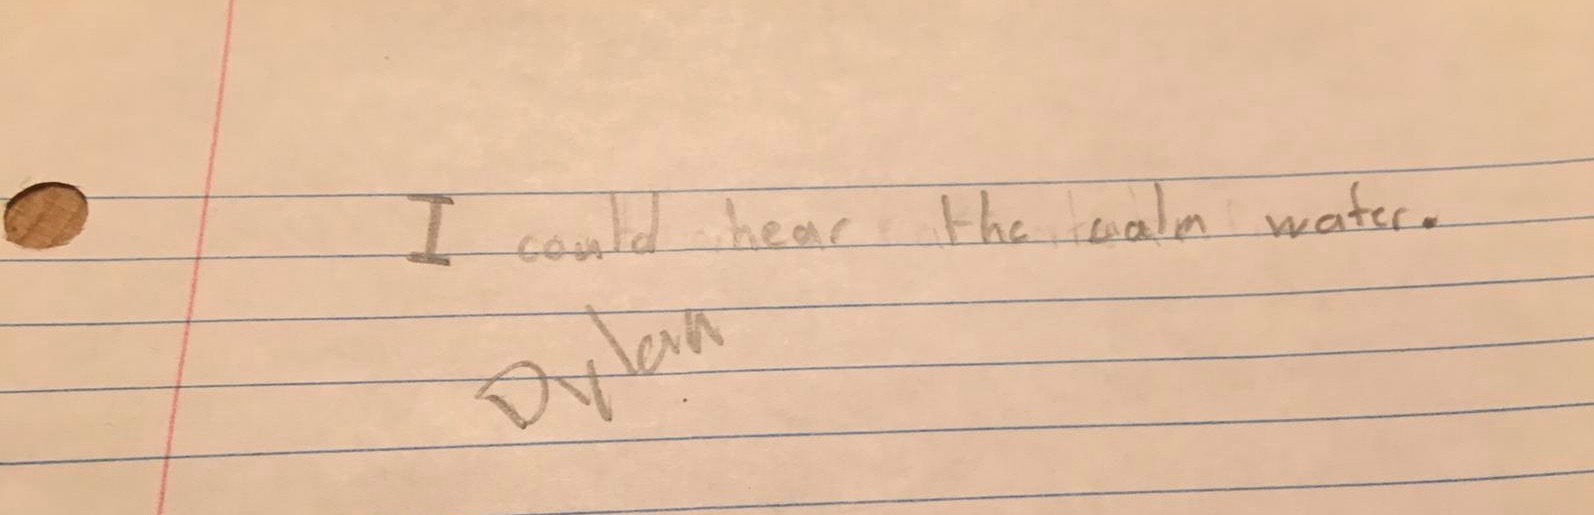 I could hear the calm water.
Dylan